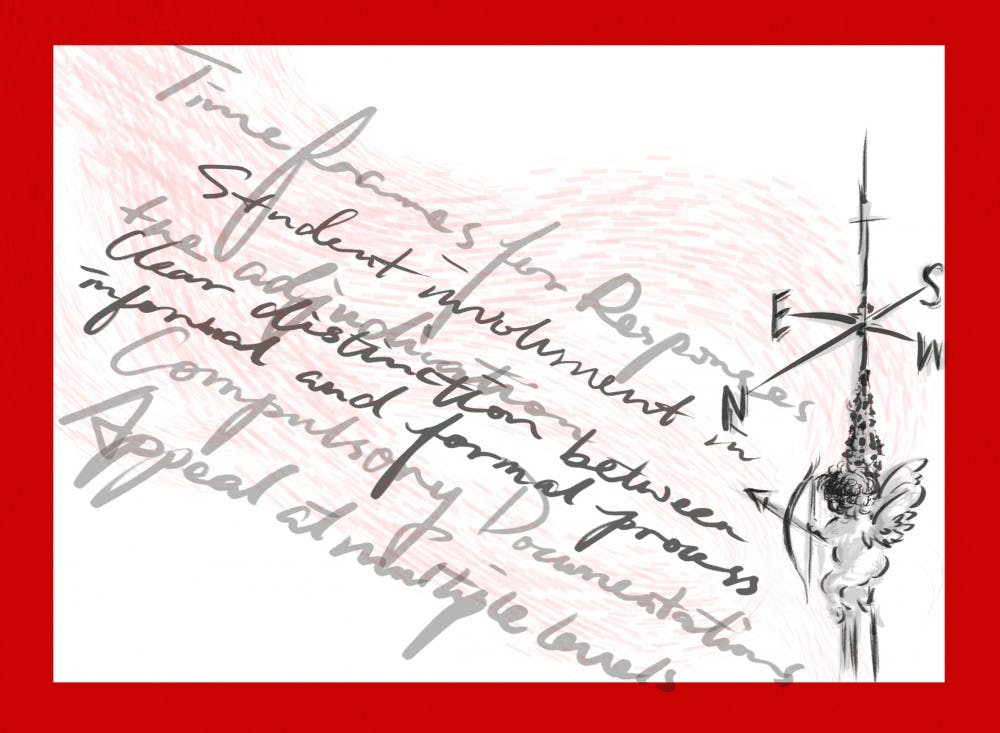 Time frames for Responses
Student involvment in
the adjudication
Clear distinction between
informal and formal process
Compulsory Documentations
Appeal at multiple levels
S
E
W
N